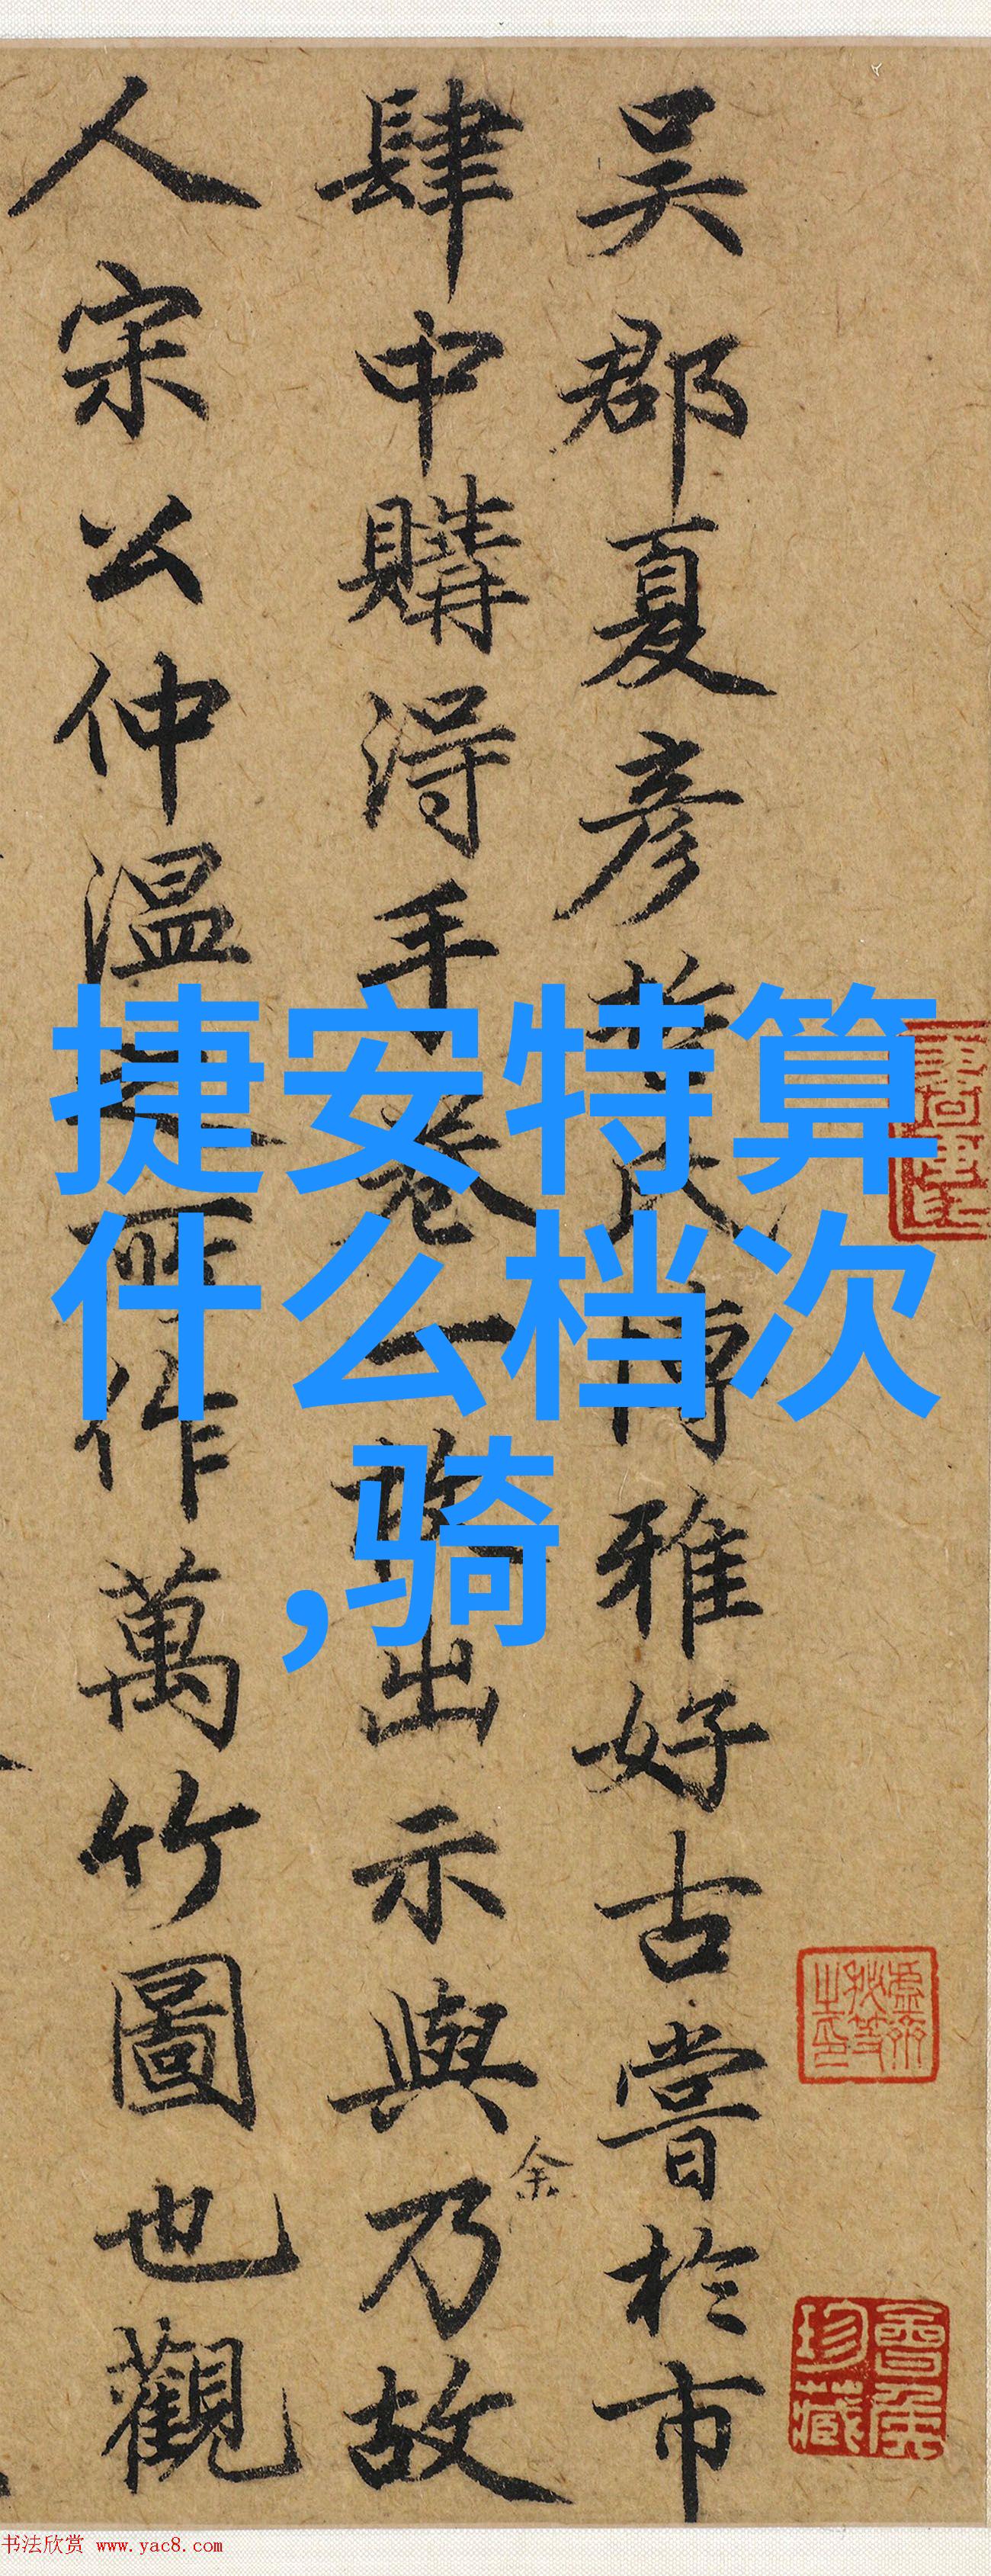 吴郡夏彦
博雅好古嘗於市
肆中購得手卷一
出示與乃故
余
人宋公仲温
所作萬竹圖也觀
捷安特算
什么档次
,骑
珍藏
书法欣赏 www.yac8.com